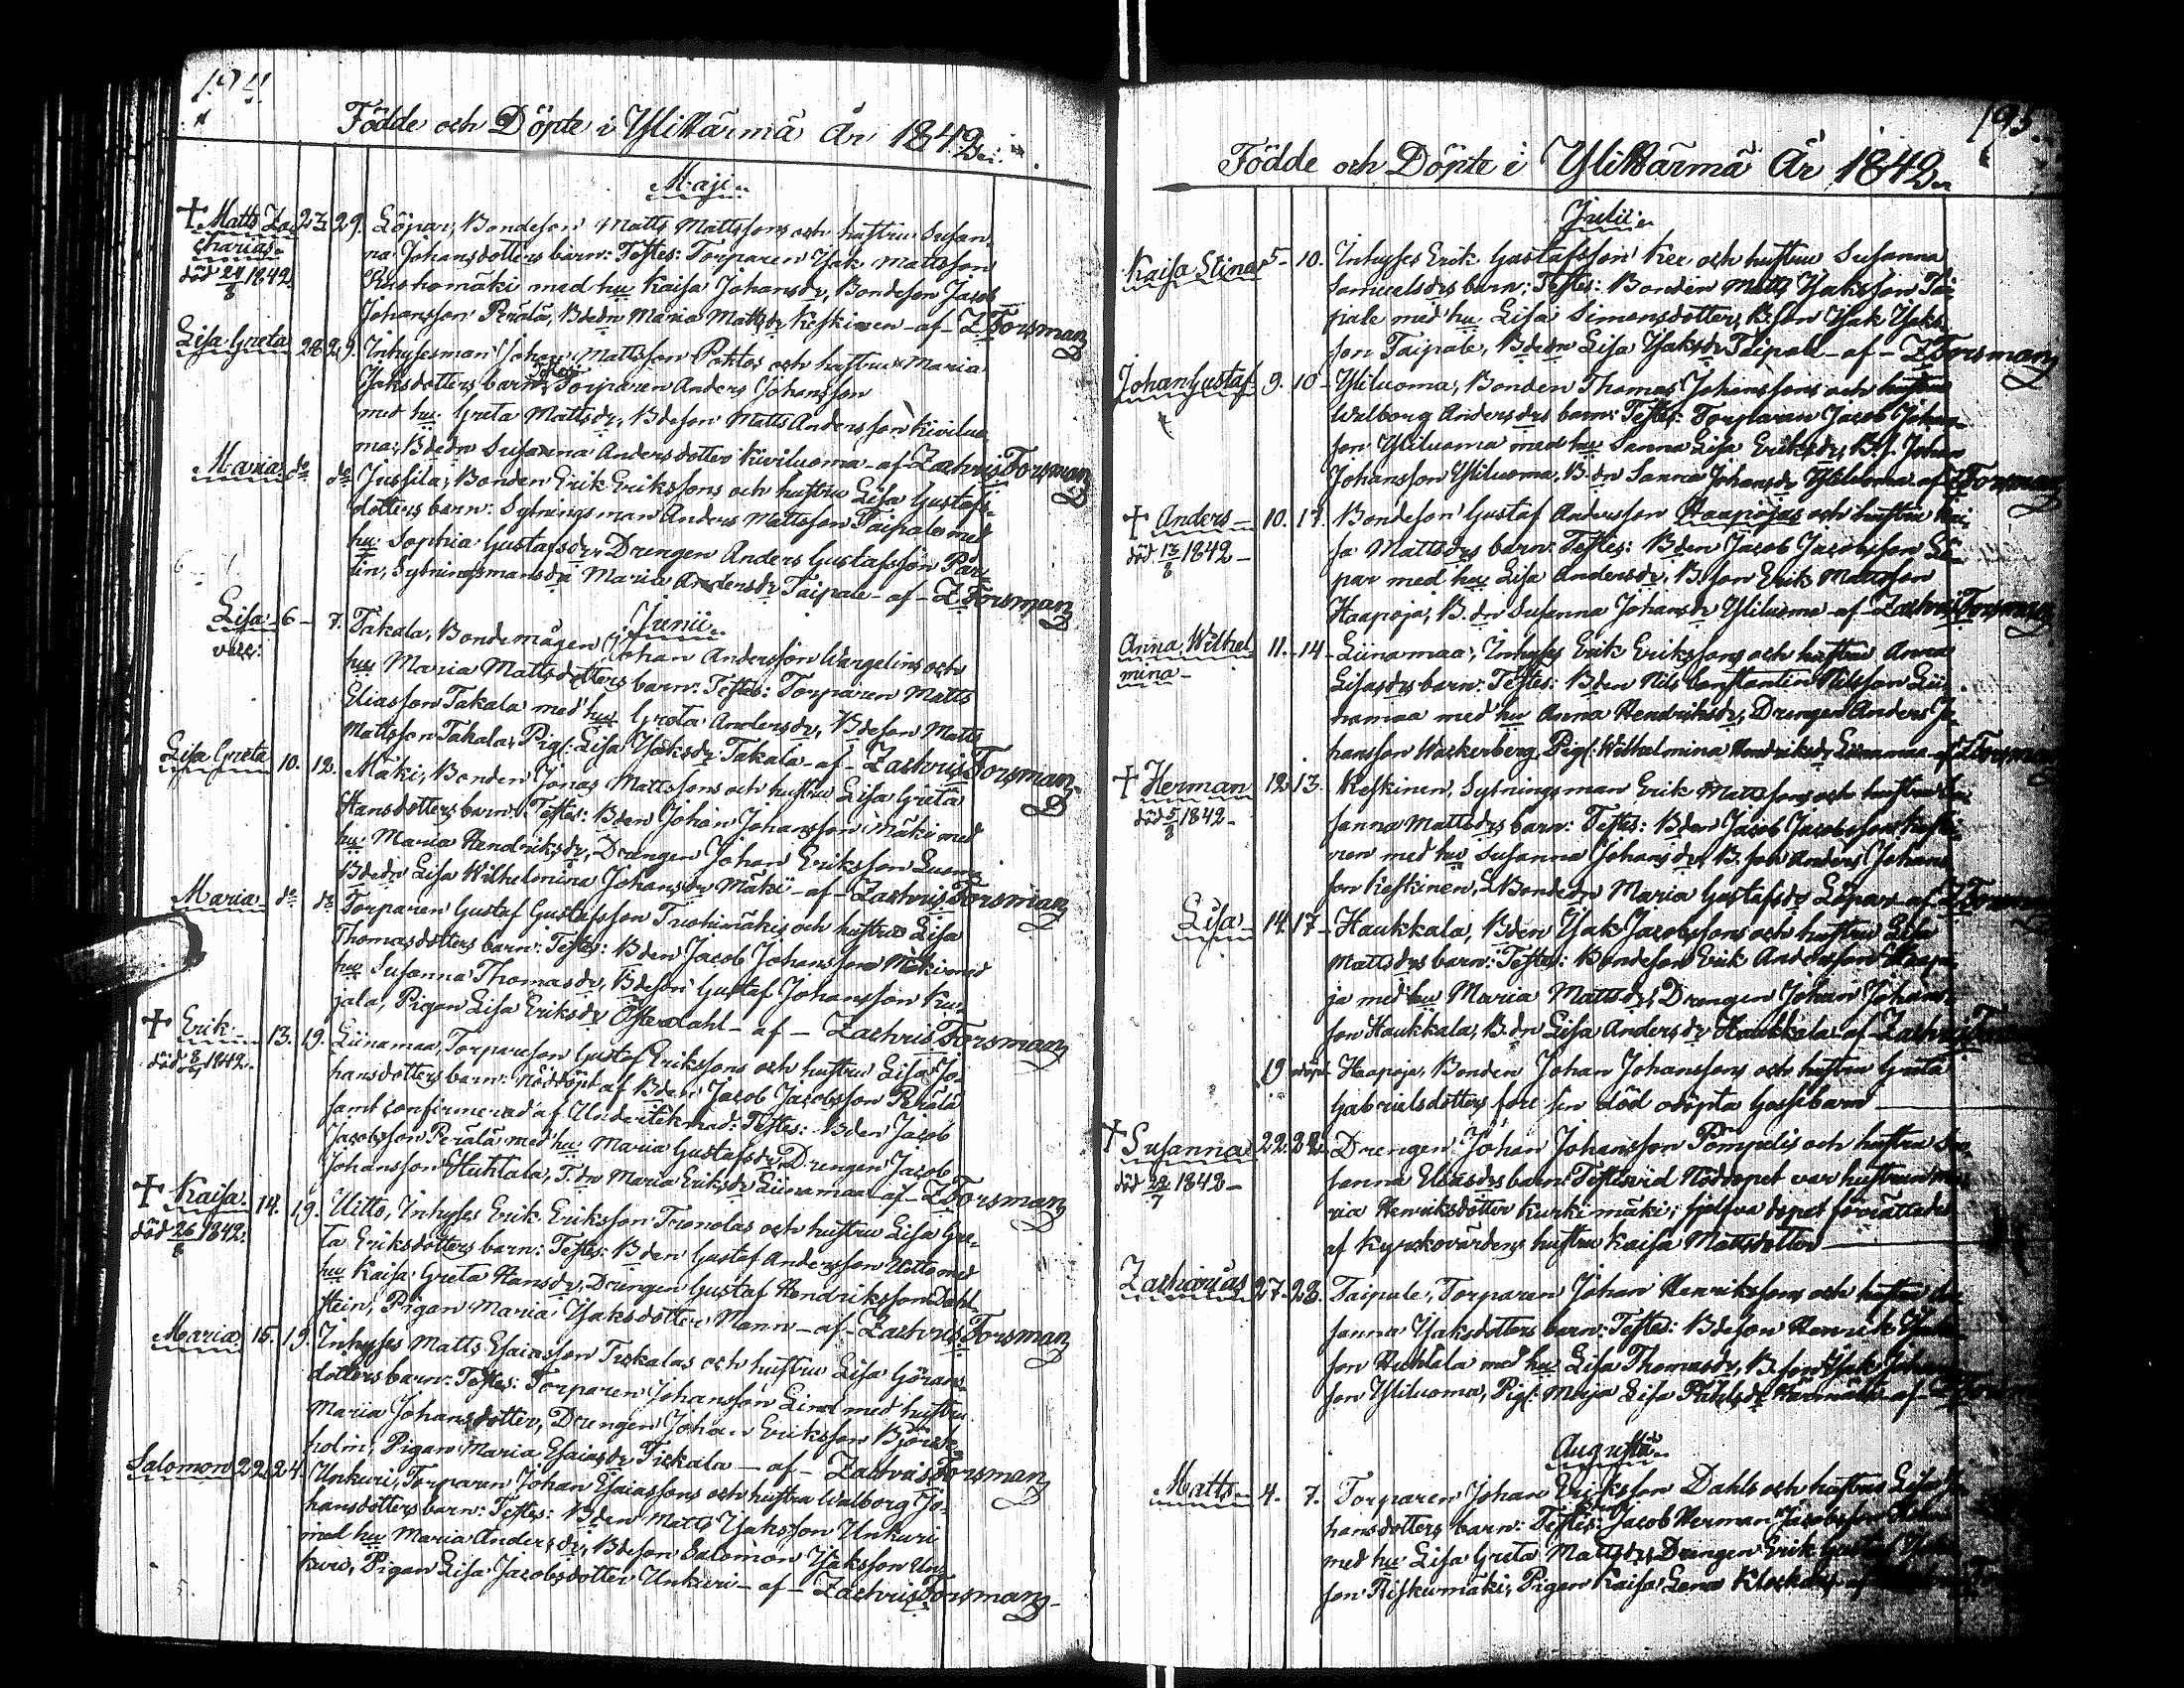 194.
Födde och Döpte i Ylikärmä År 1842.
Maji.
† Matts Za- 23. 29. Löpar, Bondeson Matts Mattssons och hustru Susan-
charias na Johansdotters barn: Testes: Torparen Isak Mattsson
död 24/8 1842 Ruohomäki med hu Kaisa Johansdr, Bondeson Jacob
Johansson Perälä, Bdedr Maria Mattsdr Keskinen - af - Z Forsman
Lisa Greta 28. 29. Inhysesman Johan Mattsson Potkos och hustru Maria
Isaksdotters barn: Testes: Torparen Anders Johansson
med hu Greta Mattsdr, Bdeson Matts Andersson Kiviluo-
ma, Bdedr Susanna Andersdotter Kiviluoma - af Zachris Forsman
Maria do do Jussila, Bonden Erik Erikssons och hustru Lisa Gustafs-
dotters barn: Sytningsman Anders Mattsson Taipale med
hu Sophia Gustafsdr, Drengen Anders Gustafsson Pär-
lin, Sytningsmansdr Maria Andersdr Taipale - af - Z Forsman
Junii.
Lisa 6 - 7. Takala, Bondemågen Johan Andersson Wargelins och
hu Maria Mattsdotters barn: Testes: Torparen Matts
Eliasson Takala med hu Greta Andersdr, Bdeson Matts
Mattsson Takala, Pig: Lisa Isaksdr Takala - af - Zachris Forsman
Lisa Greta 10. 12. Mäki, Bonden Jonas Mattssons och hustru Lisa Greta
Hansdotters barn: Testes: Bden Johan Johansson Mäki med
hu Maria Hendriksdr, Drengen Johan Eriksson Luoma
Bdedr Lisa Wilhelmina Johansdr Mäki - af - Zachris Forsman
Maria do do Torparen Gustaf Gustafsson Tuohimäkis och hustru Lisa
Thomasdotters barn: Testes: Bden Jacob Johansson Mäki med
hu Susanna Thomasdr, Bdeson Gustaf Johansson Kur-
jala, Pigan Lisa Eriksdr Österdahl - af - Zachris Forsman
† Erik 13. 19. Liinamaa, Torpareson Gustaf Erikssons och hustru Lisa Jo-
död 1842. hansdotters barn: Nöddöpt af Bden Jacob Jacobsson Perälä
samt confirmerad af Undertecknad: Testes: Bden Jacob
Jacobsson Perälä med hu Maria Gustafsdr, Drengen Jacob
Johansson Huhtala, T.dr Maria Eriksdr Liinamaa - af - Z Forsman
† Kaisa 14. 19. Uitto, Inhyses Erik Eriksson Tionolas och hustru Lisa Gre-
död 26/8 1842. ta Eriksdotters barn: Testes: Bden Gustaf Andersson Uitto med
hu Kaisa Greta Hansdr, Drengen Gustaf Hendriksson Dahl-
stein, Pigan Maria Isaksdotter Mann - af - Zachris Forsman
Maria 15. 19. Inhyses Matts Esaiasson Tiskalas och hustru Lisa Görans-
dotters barn: Testes: Torparen Johansson Lind med hustru
Maria Johansdotter, Drengen Johan Eriksson Björk-
holm, Pigan Maria Esaiasdr Tiskala - af - Zachris Forsman
Salomon 22. 24. Unkuri, Torparen Johan Esaiassons och hustru Walborg Jo-
hansdotters barn: Testes: Bden Matts Isaksson Unkuri
med hu Maria Andersdr, Bdeson Salomon Isaksson Un-
kuri, Pigan Lisa Jacobsdotter Unkuri - af - Zachris Forsman
195.
Födde och Döpte i Ylikärmä År 1842.
Julii.
Kaisa Stina 5 - 10. Inhyses Erik Gustafsson och hustru Susanna
Samuelsdrs barn: Testes: Bonden Matts Isaksson Tai-
pale med hu Lisa Simonsdotter, B.son Isak Isaks-
son Taipale, Bdedr Lisa Isaksdr Taipale - af - Z Forsman
Johan Gustaf 9. 10 - Yliluoma, Bonden Thomas Johanssons och hustru
Walborg Andersdrs barn: Testes: Torparen Jacob Johan-
son Yliluoma med hu Sanna Lisa Eriksdr, B.s. Johan
Johansson Yliluoma, B.dr Sanna Johansdr Yliluoma af Z Forsman
† Anders - 10. 17. Bondeson Gustaf Andersson Haapojas och hustru Kai-
död 13/8 1842 - sa Mattsdrs barn: Testes: Bden Jacob Jacobsson Lö-
par med hu Lisa Andersdr, B.son Erik Mattsson
Haapoja, B.dr Susanna Johansdr Yliluoma - af - Zachris Forsman
Anna Wilhel- 11. - 14 - Liinamaa, Inhyses Erik Erikssons och hustru Anna
mina - Lisasdrs barn: Testes: Bden Nils Constantin Nilsson Lii-
namaa med hu Anna Hendriksdr, Drengen Anders Jo-
hansson Wackerberg, Pig: Wilhelmina Hendriksdr Liinamaa - af Z Forsman
† Herman 12. 13. Keskinen, Sytningsman Erik Mattssons och hustru Su-
död 5/8 1842 - sanna Mattsdrs barn: Testes: Bden Jacob Jacobsson Keski-
nen med hu Susanna Johansdr, B.son Anders Johans-
son Keskinen, Bondedr Maria Gustafsdr Löpar - af Z Forsman
Lisa - 14. 17 - Haukkala, Bden Isak Jacobssons och hustru Lisa
Mattsdrs barn: Testes: Bondeson Erik Andersson Haapo-
ja med hu Maria Mattsdr, Drengen Johan Johans-
son Haukkala, B.dr Lisa Andersdr Haukkala - af Zachris Forsman
19 odöpt Haapoja, Bonden Johan Johanssons och hustru Greta
Gabrielsdotters före sin död odöpta Gossebarn
† Susanna 22. 22. Drengen Johan Johansson Pompelis och hustru Su-
död 28/7 1842 - sanna Eliasdrs barn: Testes vid Nöddopet var hustrun Ma-
ria Henriksdotter Kurkimäki, sjelfva dopet förrättades
af Kyrkovärdens hustru Kaisa Mattsdotter
Zacharias 27. 28. Taipale, Torparen Johan Henrikssons och hustru Su-
sanna Isaksdotters barn: Testes: Bdeson Henrik
son Huhtala med hu Lisa Thomasdr, B.son Isak Johans-
son Yliluoma, Pig: Maja Lisa - af -
Augusti.
Matts 4. 7. Torparen Johan Eriksson Dahls och hustru Lisa Jo-
hansdotters barn: Testes: Jacob Herman Jacobsson
med hu Lisa Greta Mattsdr, Drengen Erik Gustaf
son, Pigan Kaisa Lena